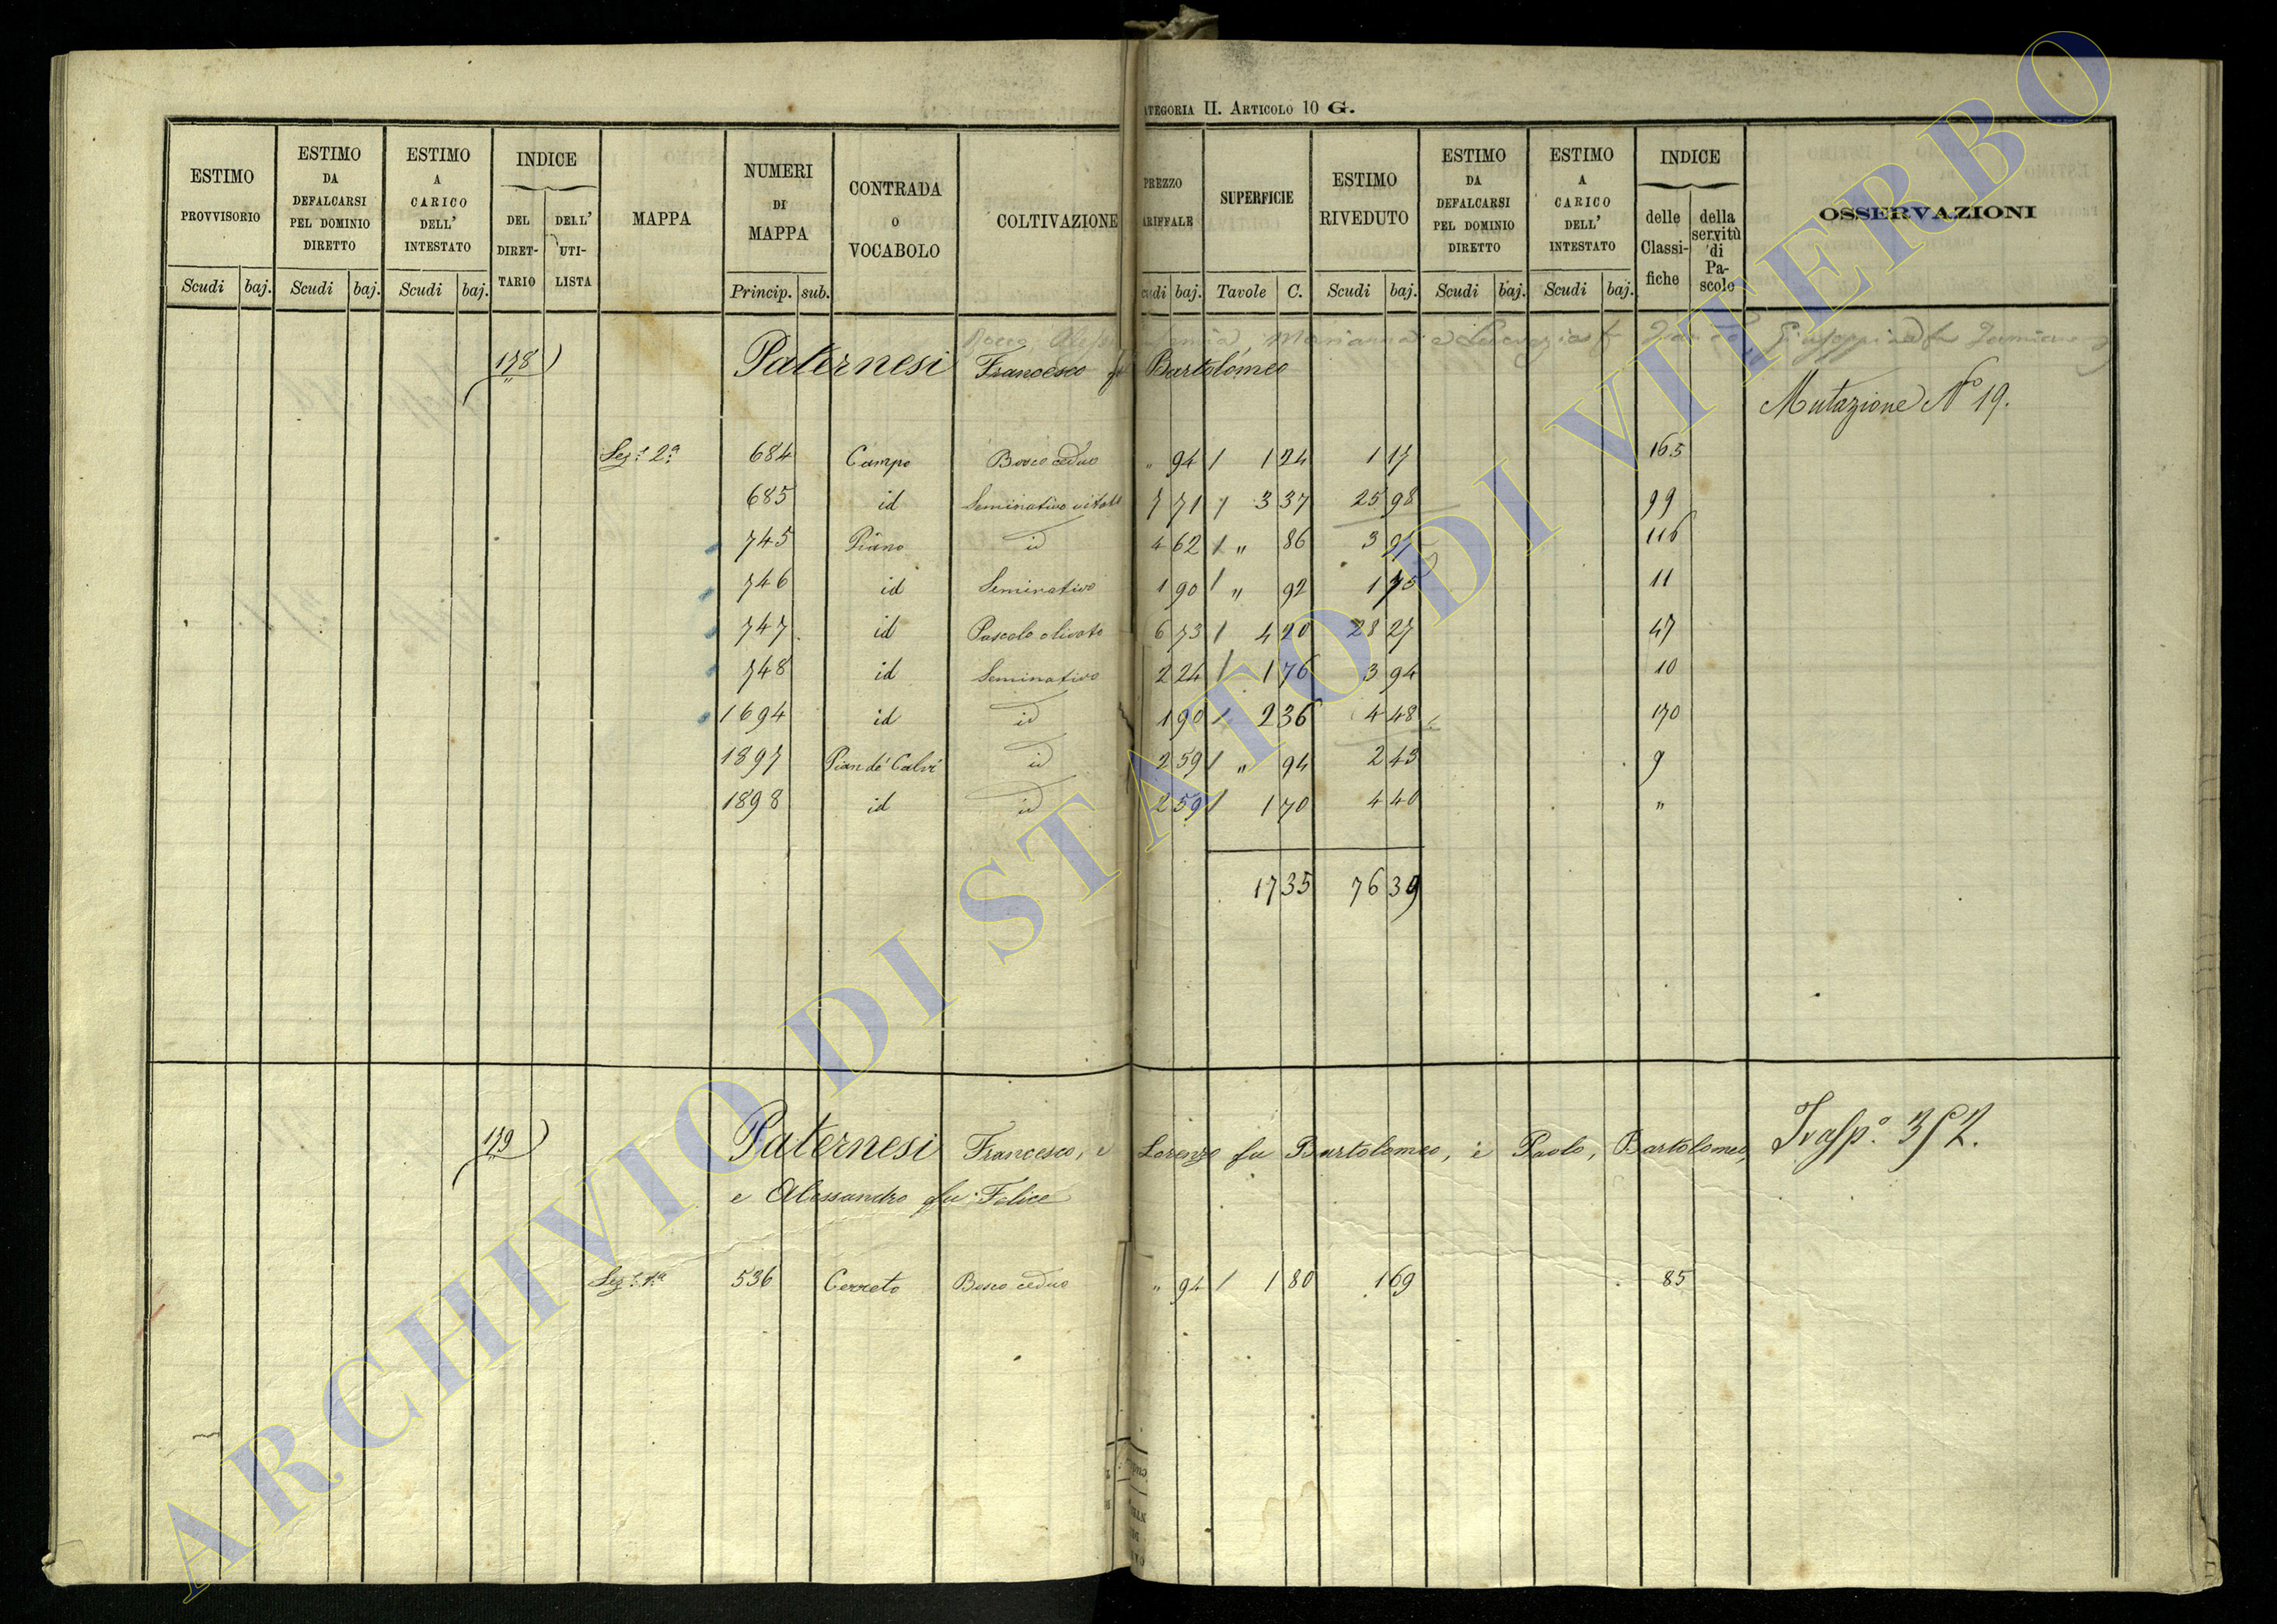 CATEGORIA II. ARTICOLO 10 G.
ESTIMO PROVVISORIO Scudi baj.
ESTIMO DA DEFALCARSI PEL DOMINIO DIRETTO Scudi baj.
ESTIMO A CARICO DELL' INTESTATO Scudi baj.
INDICE DEL DIRETTARIO DELL' UTILISTA
MAPPA
NUMERI DI MAPPA Princip. sub.
CONTRADA O VOCABOLO
COLTIVAZIONE
PREZZO TARIFFALE Scudi baj.
SUPERFICIE Tavole C.
ESTIMO RIVEDUTO Scudi baj.
ESTIMO DA DEFALCARSI PEL DOMINIO DIRETTO Scudi baj.
ESTIMO A CARICO DELL' INTESTATO Scudi baj.
INDICE delle Classifiche della servitù di Pascolo
OSSERVAZIONI
Marianna e Lucrezia Giuseppina
178) Paternesi Francesco fu Bartolomeo
Mutazione N° 19.
Sez.e 2.a 684 Campo Bosco ceduo " 94 / 1 24 1 17 165
685 id Seminativo vitato 7 71 / 3 37 25 98 99
745 Piano id 4 62 / " 86 3 97 116
746 id Seminativo 1 90 / " 92 1 75 11
747 id Pascolo olivato 6 73 / 4 20 28 27 47
748 id Seminativo 2 24 / 1 76 3 94 10
1694 id id 1 90 / 2 36 4 48 170
1897 Pian de' Calvi id 2 59 / " 94 2 43 9
1898 id id 2 59 / 1 70 4 40 "
17 35 76 39
179) Paternesi Francesco, e Lorenzo fu Bartolomeo, e Paolo, Bartolomeo, Trasp.o 352.
e Alessandro fu Felice
Sez.e 1.a 536 Cerreto Bosco ceduo " 94 / 1 80 1 69 85
ARCHIVIO DI STATO DI VITERBO